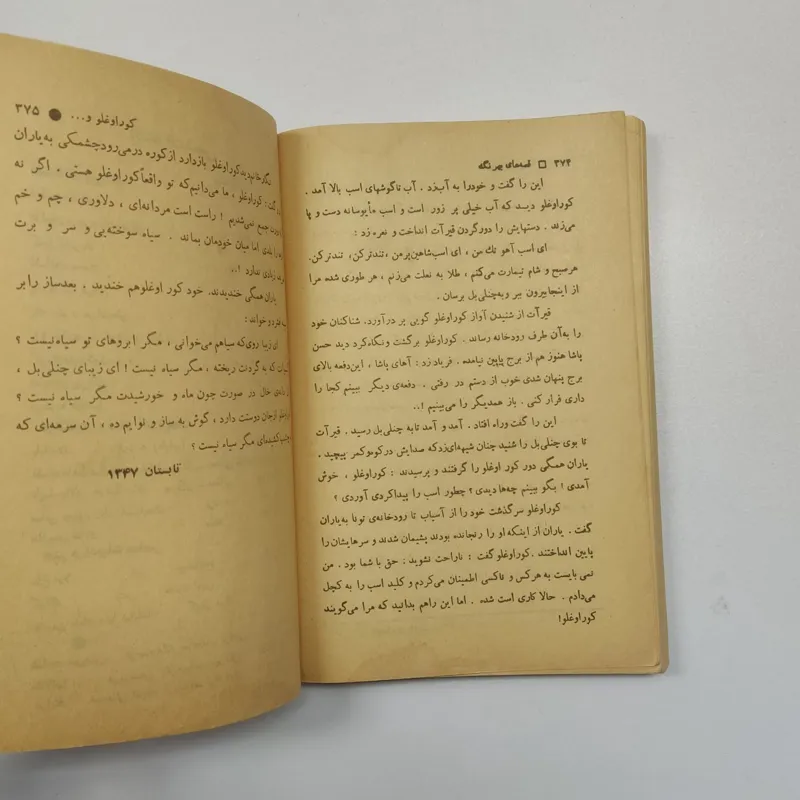 ۳۷۴ □ قصه‌های بهرنگ
این را گفت و خودرا به آب‌زد . آب تاگوشهای اسب بالا آمد .
کوراوغلو دید که آب خیلی پر زور است و اسب مأیوسانه دست و پا
می‌زند . دستهایش را دورگردن قیرآت انداخت و نعره زد :
ای اسب آهو تك من ، ای اسب‌شاهین‌پرمن ، تندترکن، تندترکن.
هرصبح و شام تیمارت می‌کنم ، طلا به نعلت می‌زنم ، هر طوری شده مرا
از اینجابیرون ببر وبه‌چنلی‌بل برسان .
قیرآت از شنیدن آواز کوراوغلو گویی پر درآورد. شناکنان خود
را به‌آن طرف رودخانه رساند . کوراوغلو برگشت و نگاه‌کرد دید حسن
پاشا هنوز هم از برج پایین نیامده . فریاد زد : آهای پاشا ، این‌دفعه بالای
برج پنهان شدی خوب از دستم در رفتی . دفعه‌ی دیگر ببینم کجا را
داری فرار کنی . باز همدیگر را می‌بینیم !..
این را گفت وراه افتاد . آمد و آمد تابه چنلی‌بل رسید . قیرآت
تا بوی چنلی‌بل را شنید چنان شیهه‌ای‌زدکه صدایش درکوه‌وکمر پیچید .
یاران همگی دور کور اوغلو را گرفتند و پرسیدند : کوراوغلو ، خوش
آمدی ! بگو ببینم چه‌ها دیدی ؟ چطور اسب را پیداکردی آوردی ؟
کوراوغلو سرگذشت خود را از آسیاب تا رودخانه‌ی تونا به‌یاران
گفت . یاران از اینکه او را رنجانده بودند پشیمان شدند و سرهایشان را
پایین انداختند . کوراوغلو گفت : ناراحت نشوید : حق با شما بود . من
نمی بایست به هرکس و ناکسی اطمینان می‌کردم و کلید اسب را به کچل
می‌دادم . حالا کاری است شده . اما این راهم بدانید که مرا می‌گویند
کوراوغلو!
کوراوغلو و... ● ۳۷۵
کوراوغلو بازدارد ازکوره درمی‌رودچشمکی به‌یاران
گفت : کوراوغلو ، ما می‌دانیم‌که تو واقعاً کوراوغلو هستی . اگر نه
جمع نمی‌شدیم ! راست است مردانه‌ای ، دلاوری ، چم و خم
را بلدی اما میان خودمان بماند . سیاه سوخته‌یی و سر و برت
زیادی ندارد !..
یاران همگی خندیدند. خود کور اوغلوهم خندید . بعدساز رابر
و خواند :
ای زیبا روی‌که سیاهم می‌خوانی ، مگر ابروهای تو سیاه‌نیست ؟
که به گردنت ریخته ، مگر سیاه نیست ! ای زیبای چنلی‌بل ،
خال در صورت چون ماه و خورشیدت مگر سیاه نیست ؟
ازجان دوستت دارد ، گوش به ساز و نوایم ده ، آن سرمه‌ای که
مگر سیاه نیست ؟
تابستان ۱۳۴۷